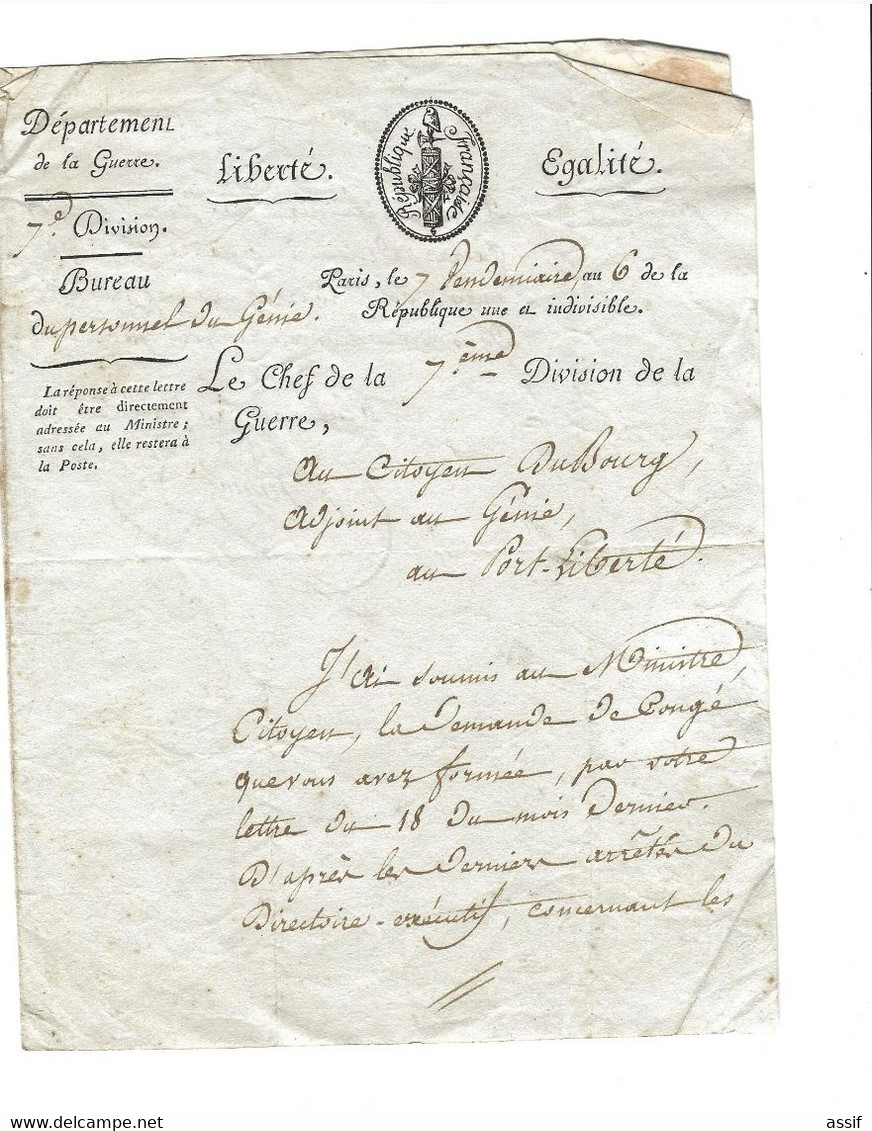 Département
de la Guerre.
Liberté.
République Française
Egalité.
7.e Division.
Bureau
du personnel du Génie.
Paris, le 7 Vendemiaire, au 6 de la
République une et indivisible.
La réponse à cette lettre
doit être directement
adressée au Ministre;
sans cela, elle restera à
la Poste.
Le Chef de la 7ème Division de la
Guerre,
Au Citoyen DuBourg,
Adjoint au Génie,
au Port-Liberté.
J'ai soumis au Ministre,
Citoyen, la demande de Congé
que vous avez formée, par votre
lettre du 18 du mois dernier.
D'après les derniers arrêtés du
Directoire-exécutif, concernant les
delcampe.net
assif